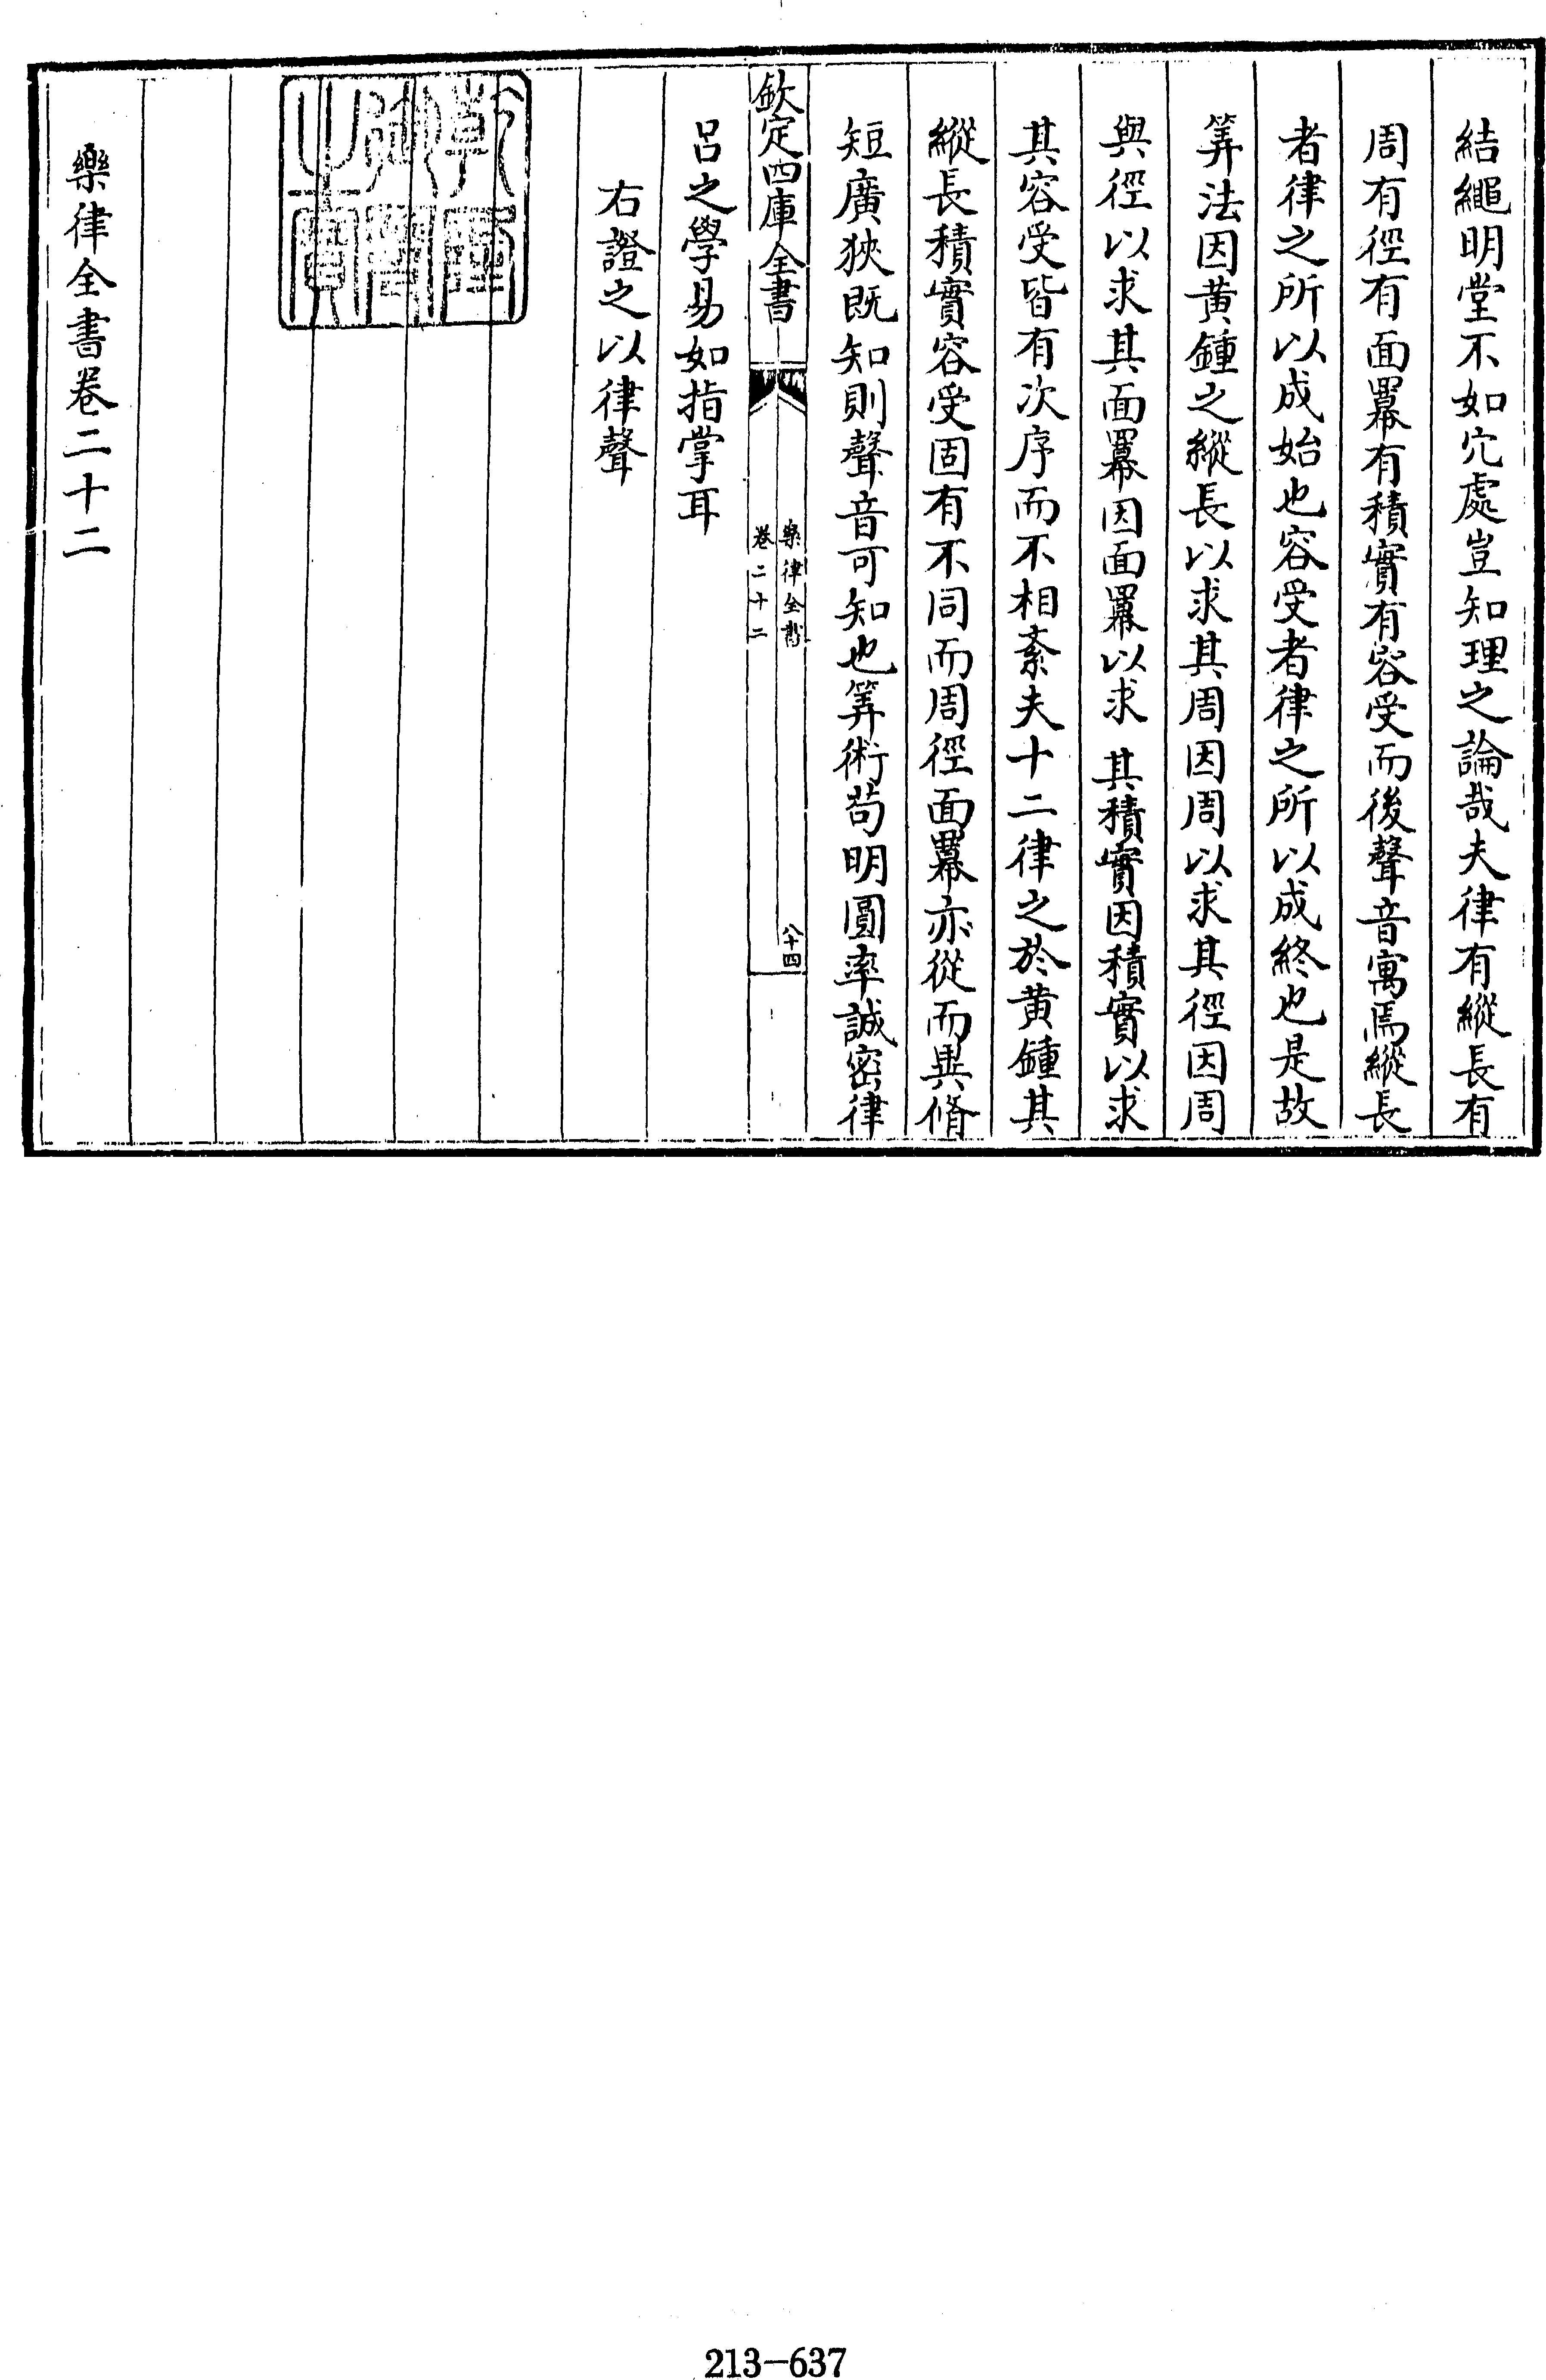 結繩明堂不如穴處豈知理之論哉夫律有縱長有
周有徑有面羃有積實有容受而後聲音寓焉縱長
者律之所以成始也容受者律之所以成終也是故
筭法因黃鍾之縱長以求其周因周以求其徑因周
與徑以求其面羃因面羃以求其積實因積實以求
其容受皆有次序而不相紊夫十二律之於黃鍾其
縱長積實容受固有不同而周徑面羃亦從而異脩
短廣狹既知則聲音可知也筭術苟明圓率誠密律
欽定四庫全書
樂律全書
卷二十二
八十四
呂之學易如指掌耳
右證之以律聲
乾隆御覽之寶
樂律全書卷二十二
213-637